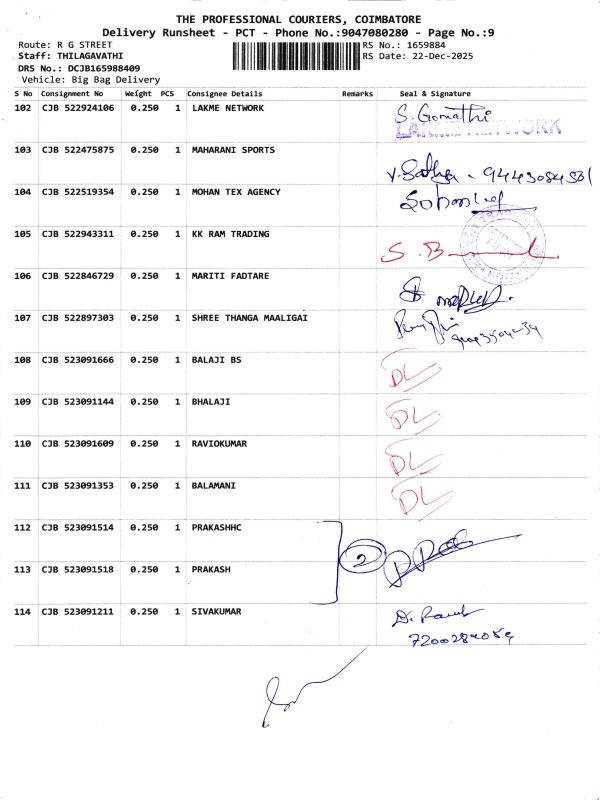 THE PROFESSIONAL COURIERS, COIMBATORE
Delivery Runsheet - PCT - Phone No.:9047080280 - Page No.:9
Route: R G STREET
RS No.: 1659884
Staff: THILAGAVATHI
RS Date: 22-Dec-2025
DRS No.: DCJB165988409
Vehicle: Big Bag Delivery
S No Consignment No Weight PCS Consignee Details Remarks Seal & Signature
102 CJB 522924106 0.250 1 LAKME NETWORK S. Gomathi
LAKME NETWORK
103 CJB 522475875 0.250 1 MAHARANI SPORTS
104 CJB 522519354 0.250 1 MOHAN TEX AGENCY
105 CJB 522943311 0.250 1 KK RAM TRADING
106 CJB 522846729 0.250 1 MARITI FADTARE
107 CJB 522897303 0.250 1 SHREE THANGA MAALIGAI
108 CJB 523091666 0.250 1 BALAJI BS DL
109 CJB 523091144 0.250 1 BHALAJI DL
110 CJB 523091609 0.250 1 RAVIOKUMAR DL
111 CJB 523091353 0.250 1 BALAMANI DL
112 CJB 523091514 0.250 1 PRAKASHHC
2
113 CJB 523091518 0.250 1 PRAKASH
114 CJB 523091211 0.250 1 SIVAKUMAR